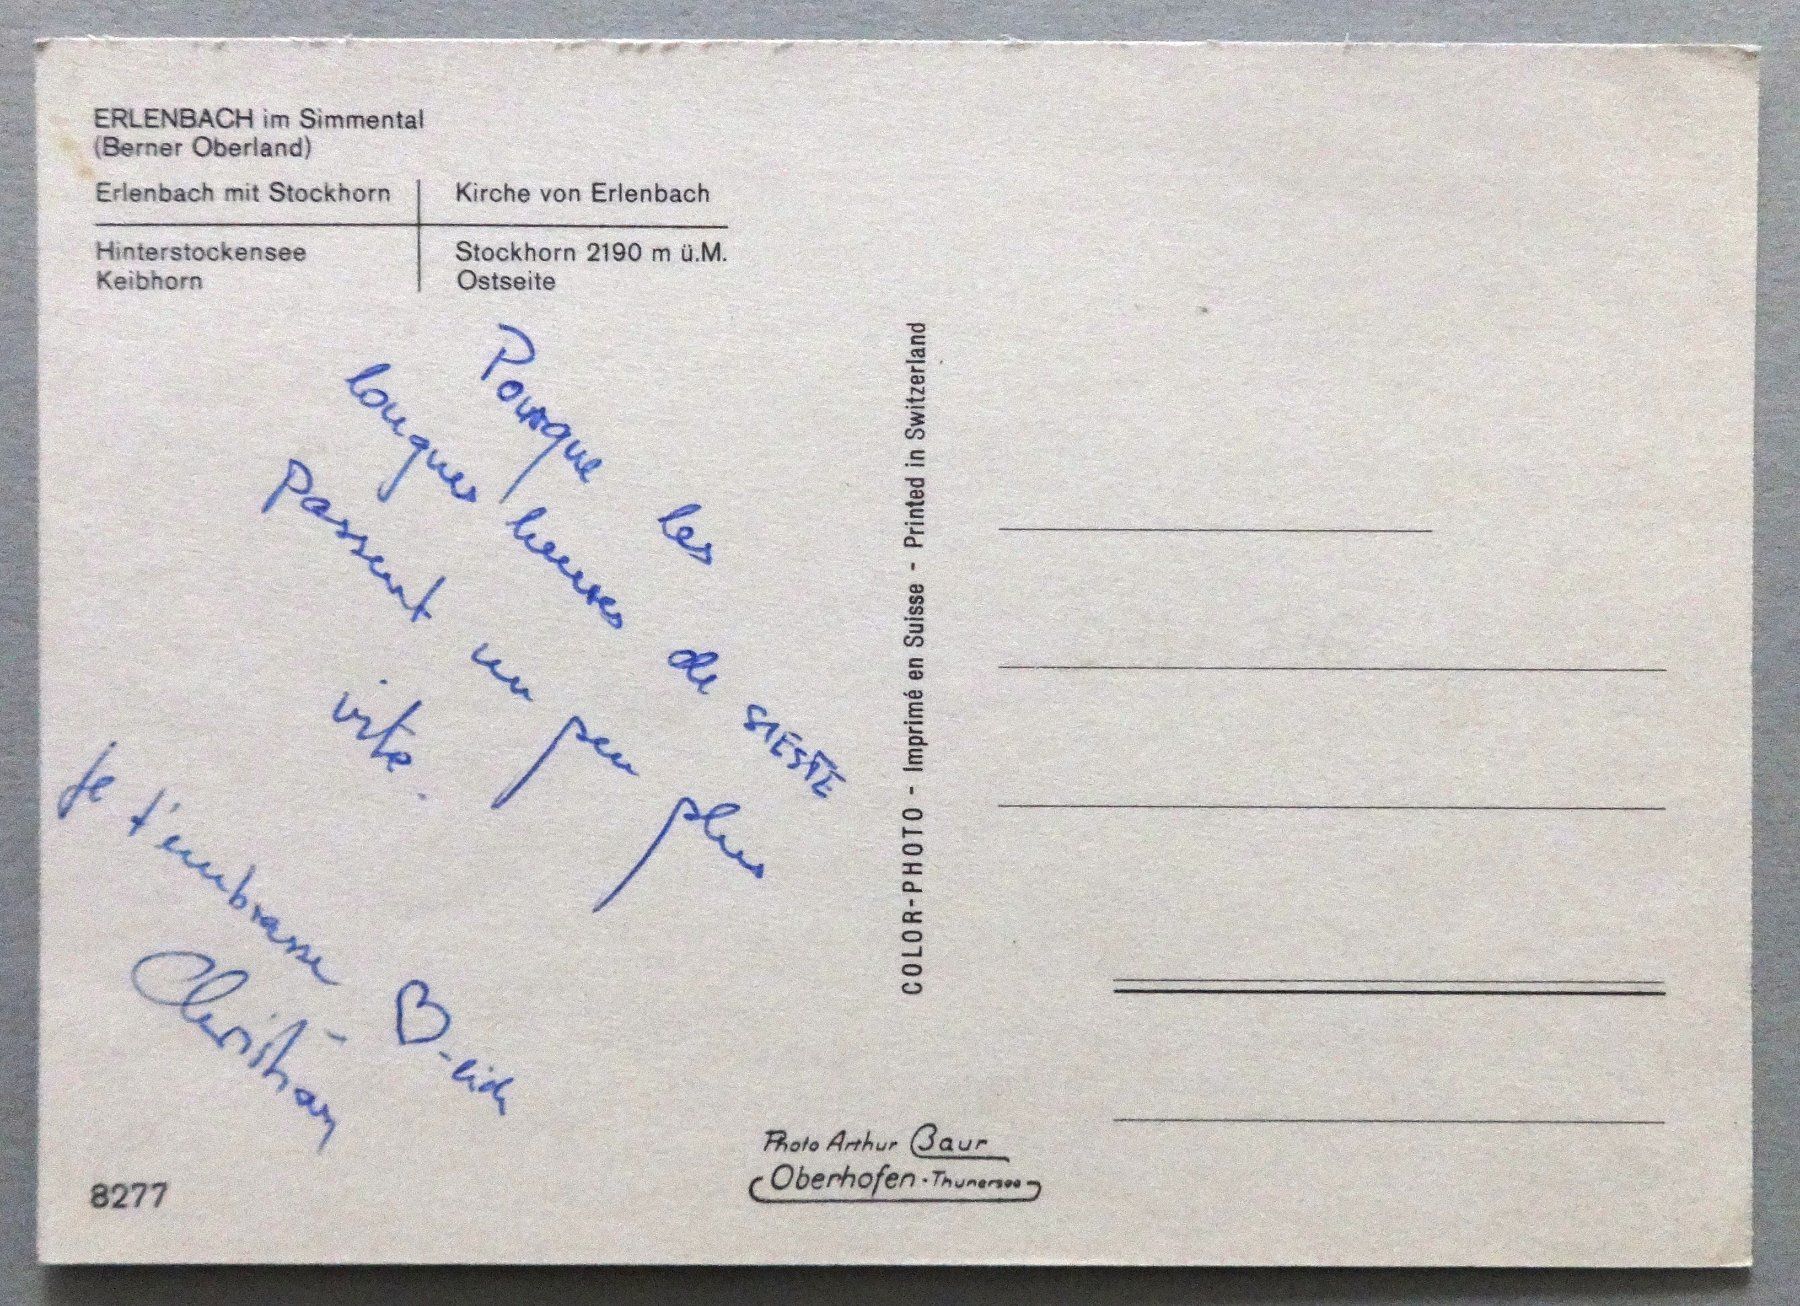 ERLENBACH im Simmental
(Berner Oberland)
Erlenbach mit Stockhorn
Kirche von Erlenbach
Hinterstockensee
Keibhorn
Stockhorn 2190 m ü.M.
Ostseite
Pourque les
longues heures de SIESTE
passent un peu plus
vite.
Je t'embrasse ♡-lich
Christian
8277
COLOR-PHOTO - Imprimé en Suisse - Printed in Switzerland
Photo Arthur Baur
Oberhofen · Thunersee